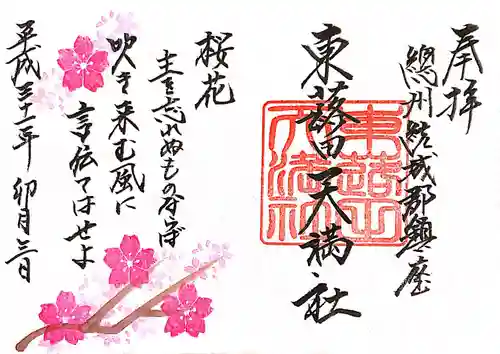 奉拝
總州結城郡鎮座
東蕗田天満社
桜花
主を忘れぬもの
吹き来む風に
言伝てはせよ
平成三十一年 卯月三日